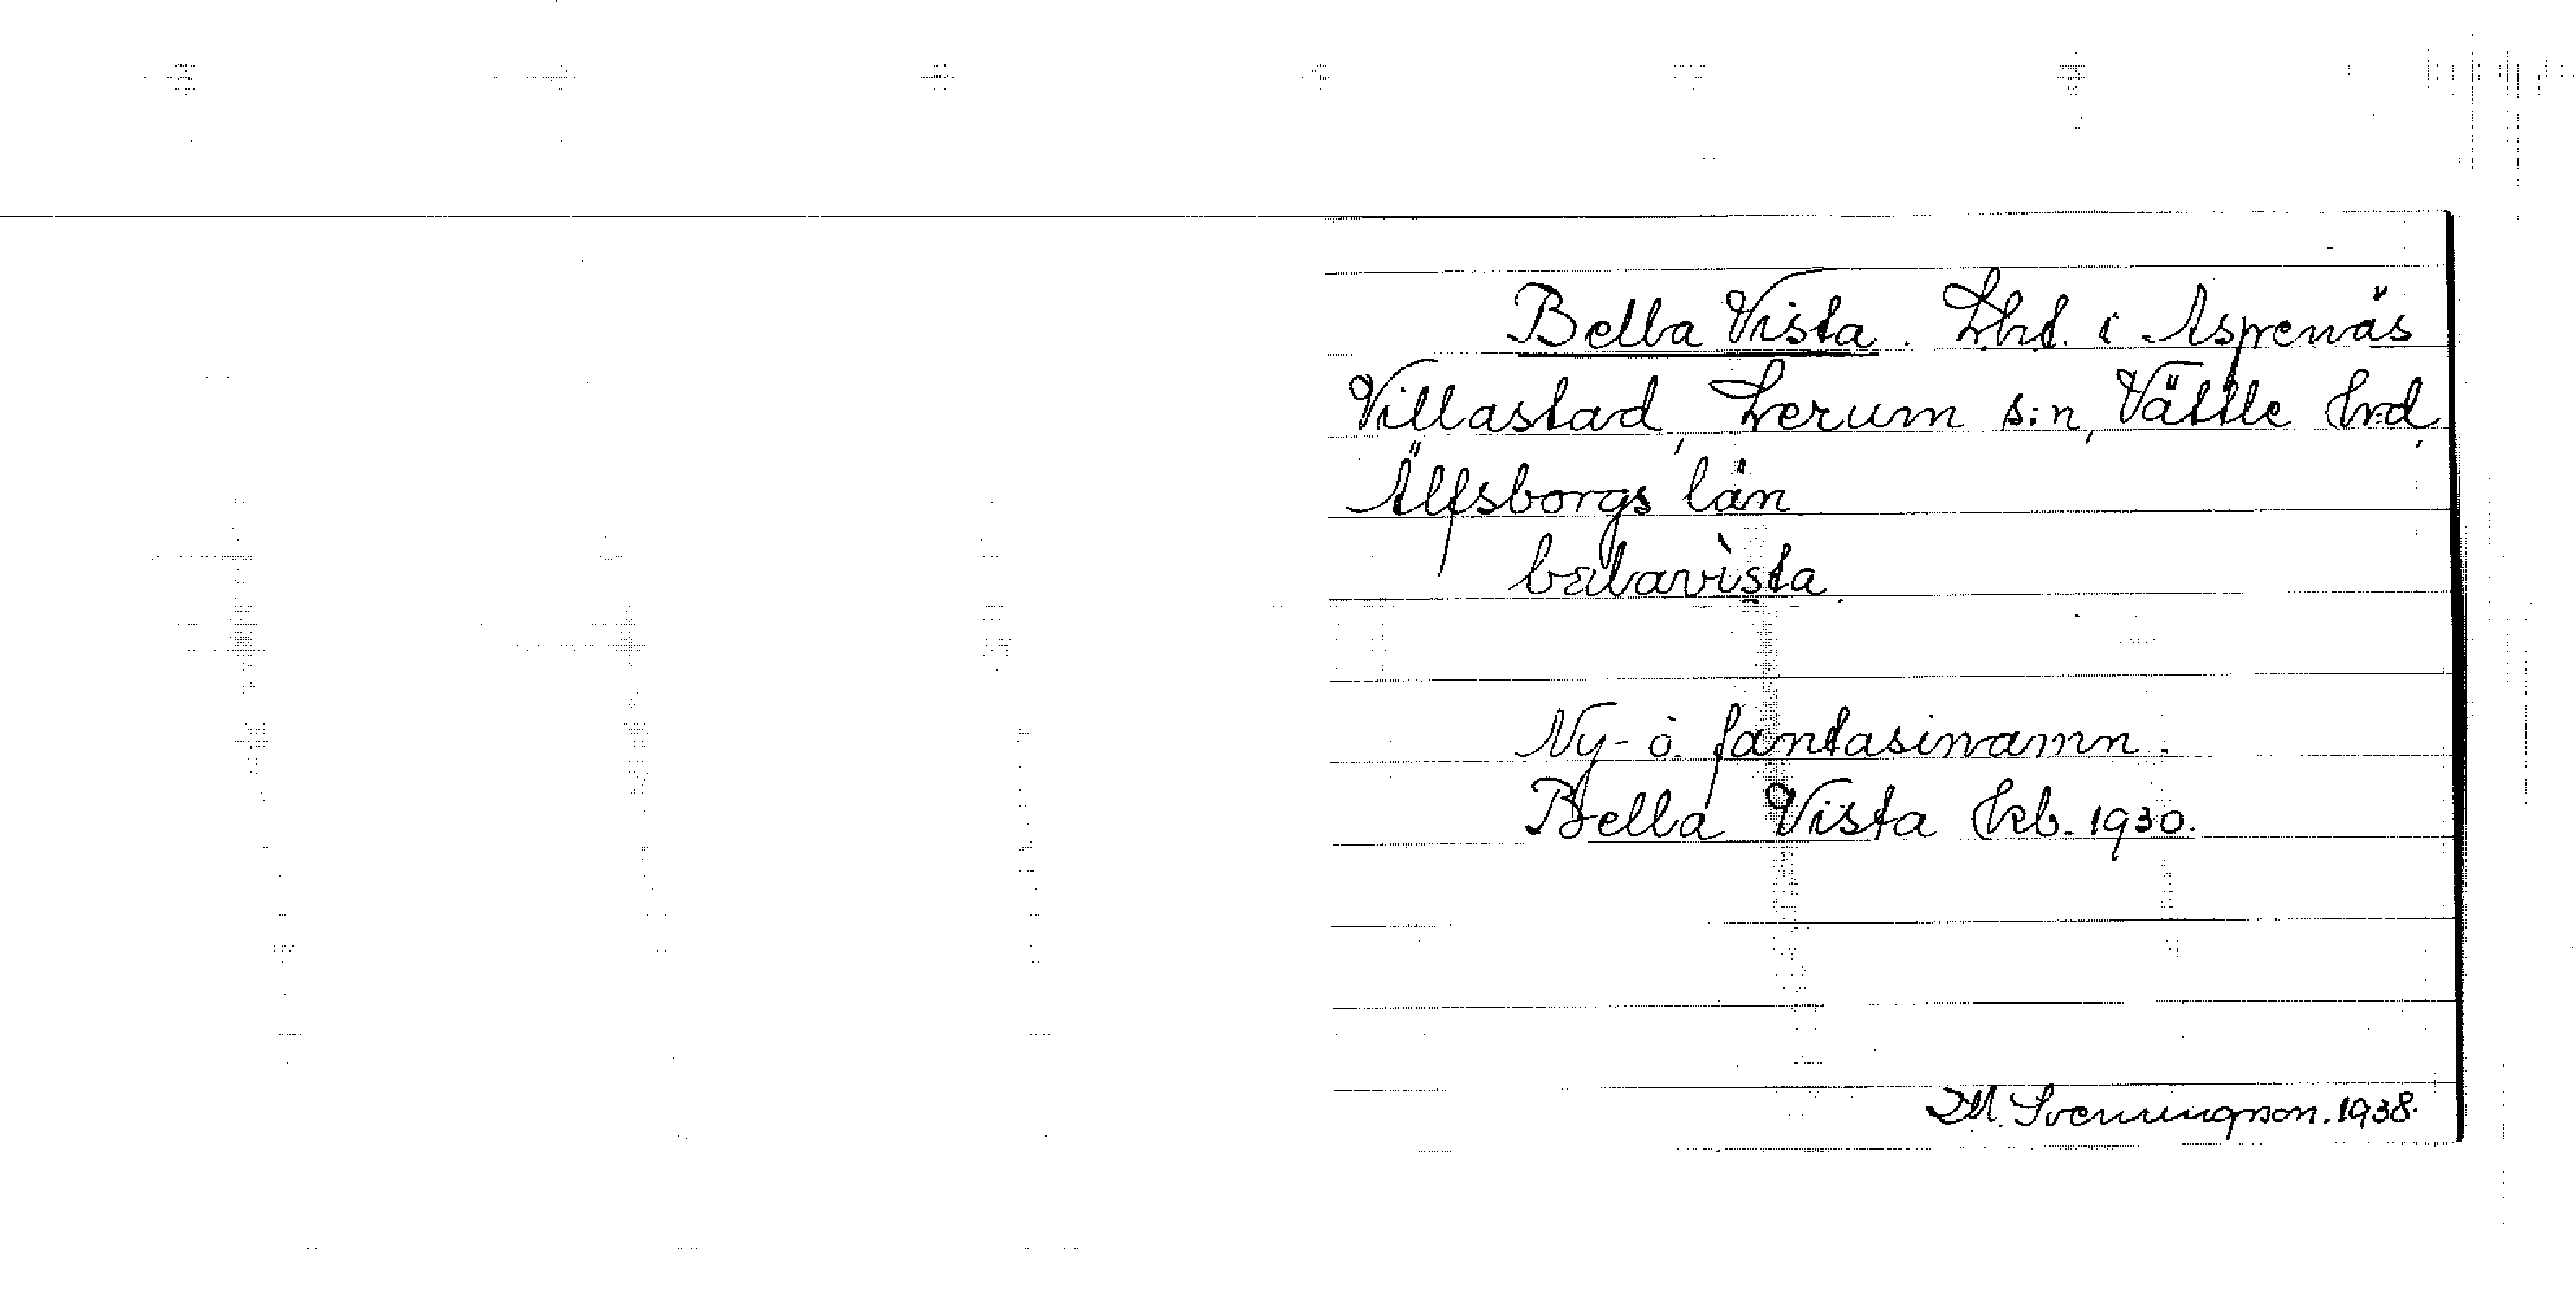 Bella Vista. Lht. i Aspenäs
Villastad, Lerum s:n, Vättle hrd,
Älfsborgs län
bælavìsta.
Ny- o. fantasinamn.
Bella Vista Kb. 1930.
Svenningson. 1938.